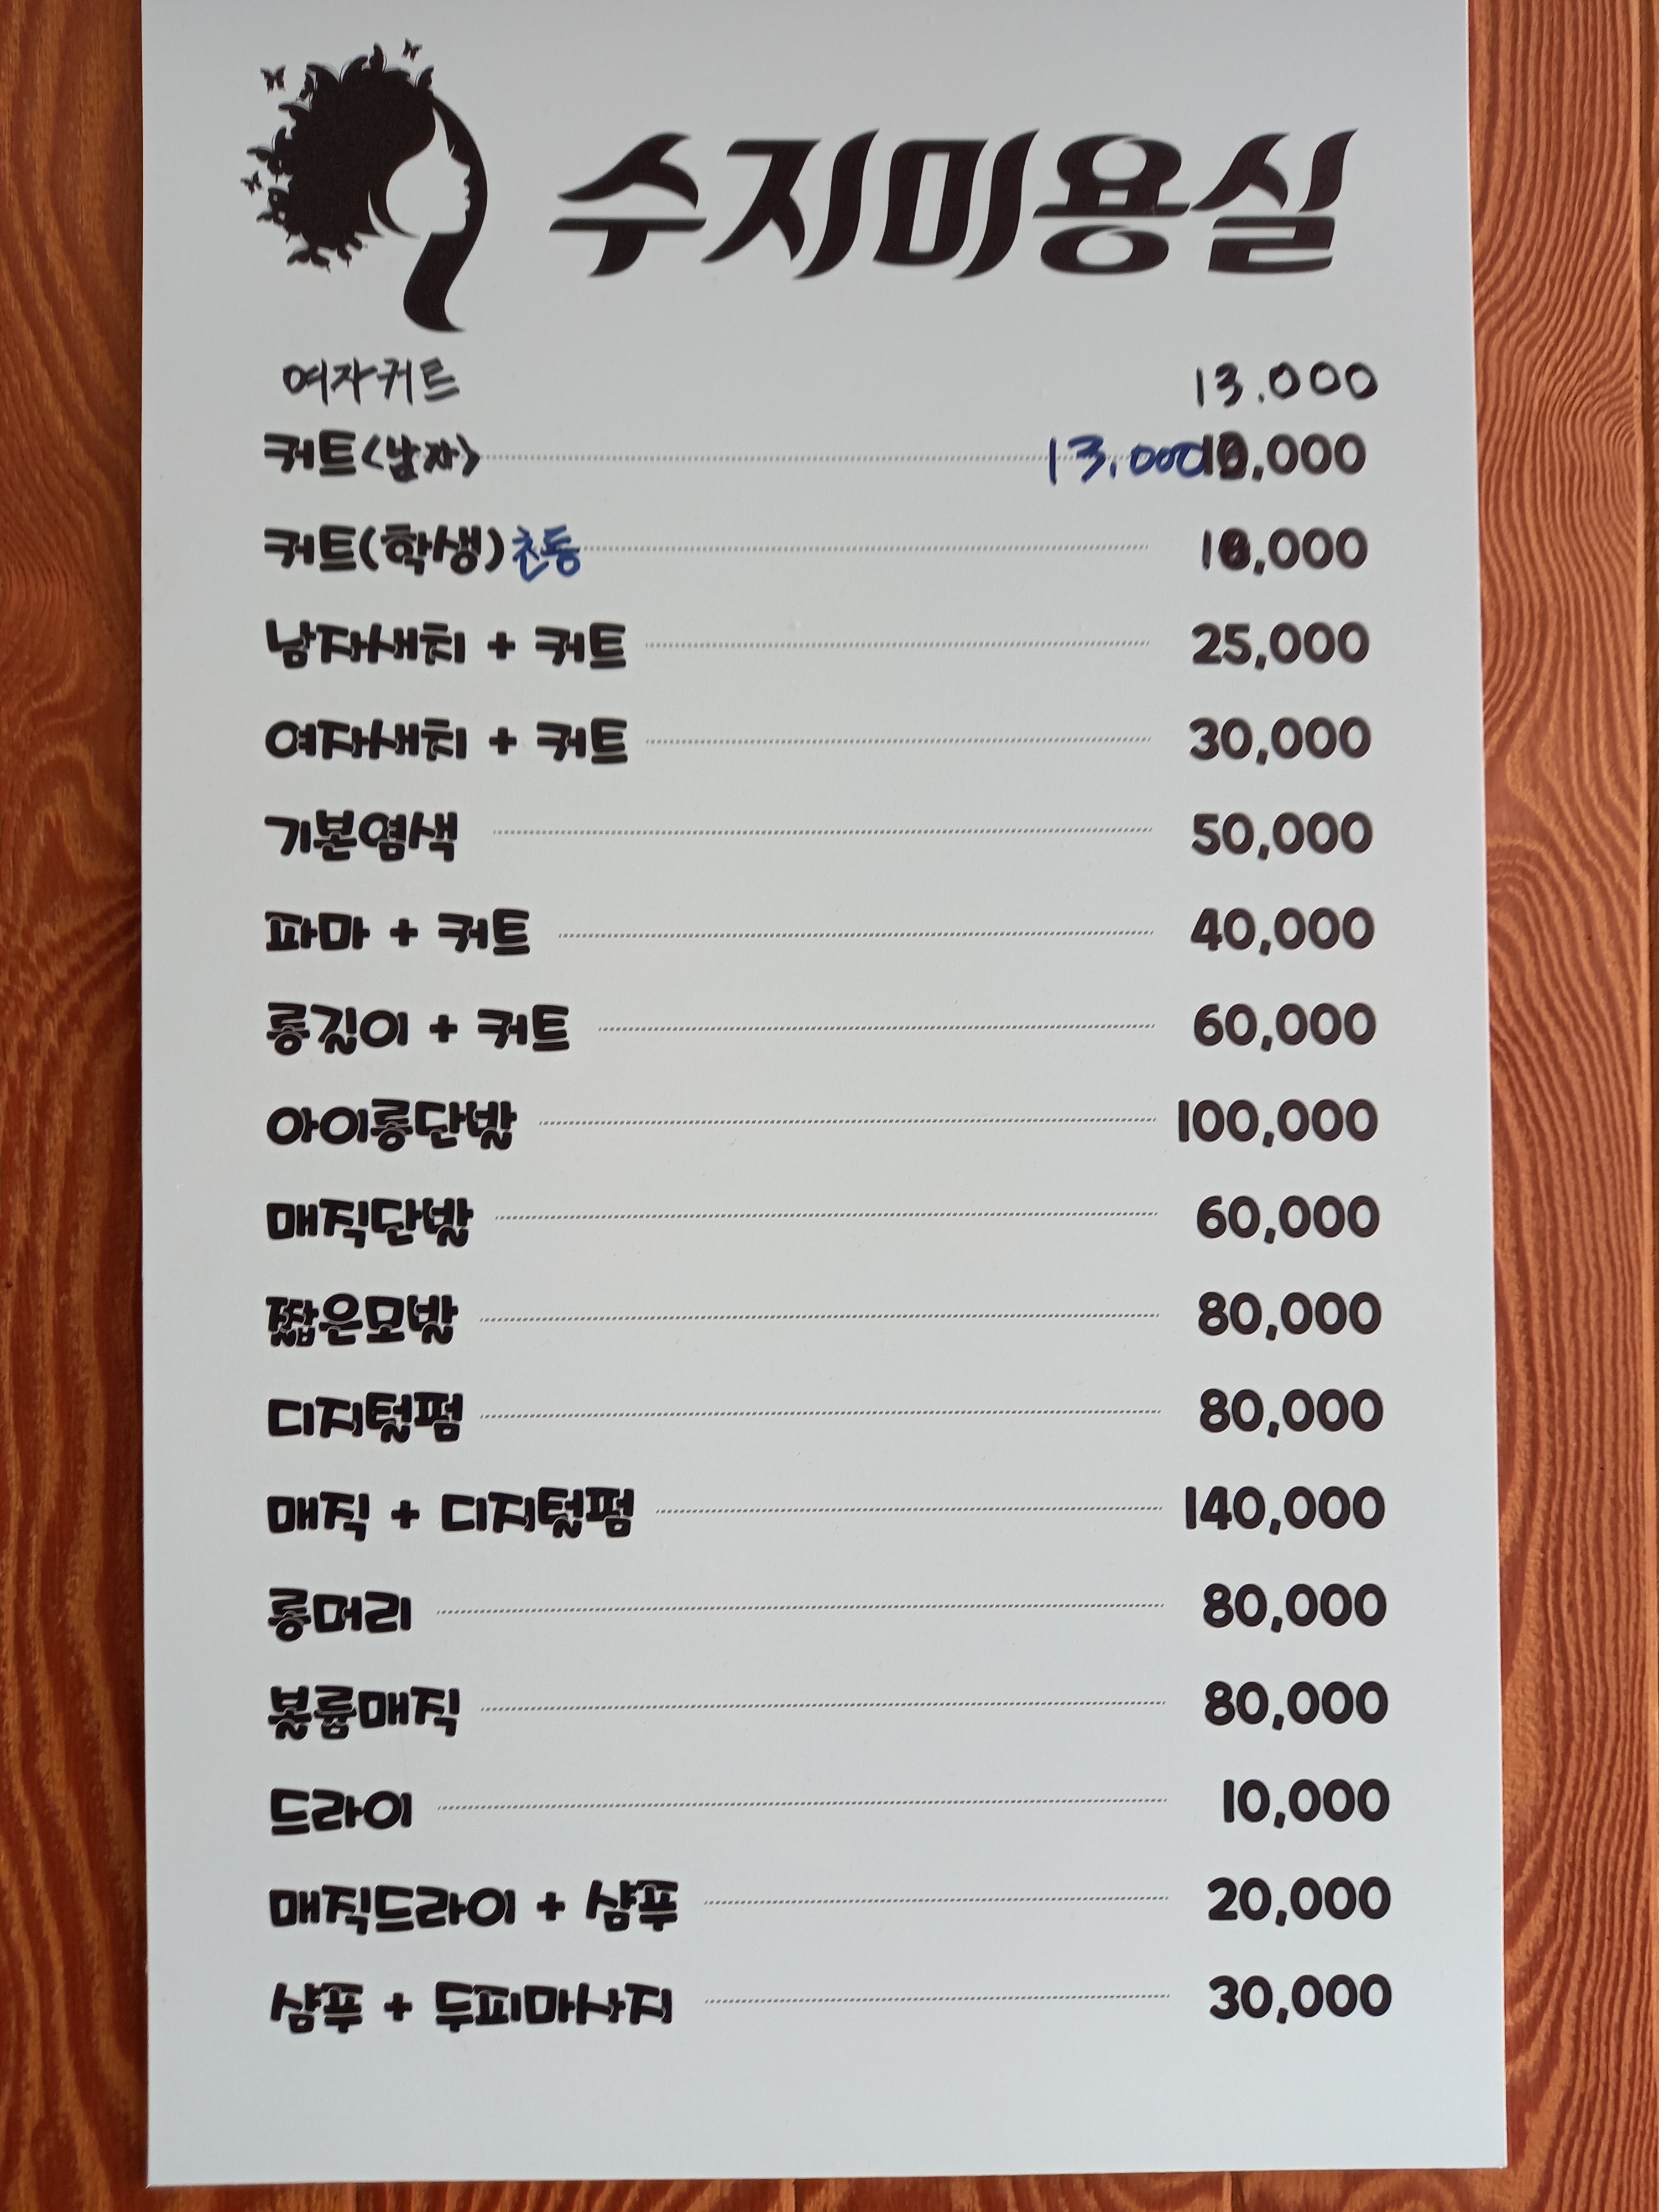 수지미용실
여자커트 13.000
커트(남자) 13.000 ,000
커트(학생) 초등 10,000
남자새치 + 커트 25,000
여자새치 + 커트 30,000
기본염색 50,000
파마 + 커트 40,000
롱길이 + 커트 60,000
아이롱단발 100,000
매직단발 60,000
짧은모발 80,000
디지털펌 80,000
매직 + 디지털펌 140,000
롱머리 80,000
볼륨매직 80,000
드라이 10,000
매직드라이 + 샴푸 20,000
샴푸 + 두피마사지 30,000